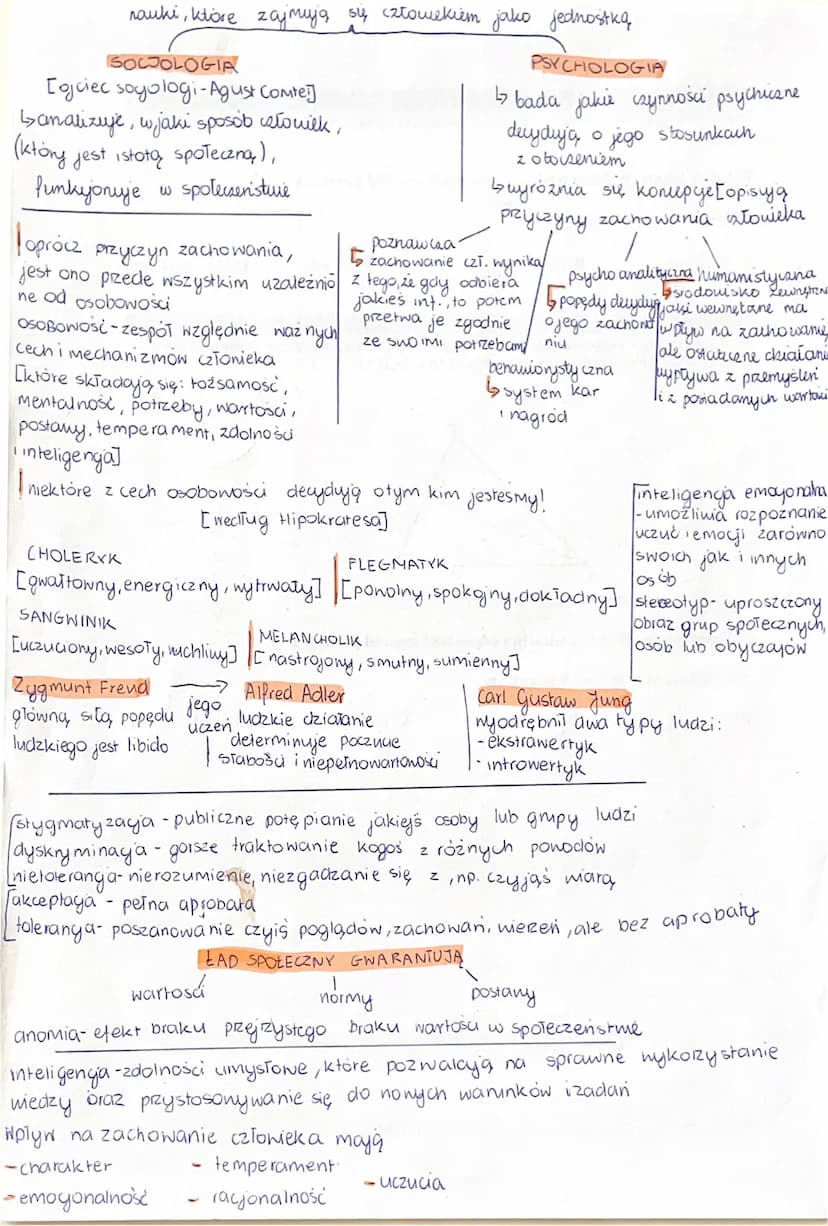 nauki, które zajmują się człowiekiem jako jednostką
SOCJOLOGIA
[ojciec socjologi - Agust Comte]
↳ analizuje, w jaki sposób człowiek,
(który jest istotą społeczną),
funkcjonuje w społeczeństwie
PSYCHOLOGIA
↳ bada jakie czynności psychiczne
decydują o jego stosunkach
z otoczeniem
↳ wyróżnia się koncepcje [opisują
przyczyny zachowania człowieka
oprócz przyczyn zachowania,
jest ono przede wszystkim uzależnio
ne od osobowości
osobowość - zespół względnie ważnych
cech i mechanizmów człowieka
[które składają się: tożsamość,
mentalność, potrzeby, wartości,
postawy, temperament, zdolności
i inteligencja]
poznawcza
↳ zachowanie czł. wynika
z tego, że gdy odbiera
jakieś inf., to potem
przetwa je zgodnie
ze swoimi potrzebami
behawiorystyczna
↳ system kar
i nagród
psychoanalityczna
↳ popędy decydują
o jego zachowa
niu
humanistyczna
↳ środowisko zewnętrzne
jak i wewnętrzne ma
wpływ na zachowanie,
ale ostateczne działani
wypływa z przemyśleń
i z posiadanych wartości
niektóre z cech osobowości decydują o tym kim jesteśmy!
[według Hipokratesa]
CHOLERYK
[gwałtowny, energiczny, wytrwały]
FLEGMATYK
[powolny, spokojny, dokładny]
SANGWINIK
[uczuciowy, wesoły, ruchliwy]
MELANCHOLIK
[nastrojowy, smutny, sumienny]
inteligencja emocjonalna
- umożliwia rozpoznanie
uczuć i emocji zarówno
swoich jak i innych
osób
stereotyp - uproszczony
obraz grup społecznych,
osób lub obyczajów
Zygmunt Freud
główną siłą popędu
ludzkiego jest libido
→
jego
uczeń
Alfred Adler
ludzkie działanie
determinuje poczucie
słabości i niepełnowartowości
Carl Gustaw Jung
wyodrębnił dwa typy ludzi:
- ekstrawertyk
- introwertyk
stygmatyzacja - publiczne potępianie jakiejś osoby lub grupy ludzi
dyskryminacja - gorsze traktowanie kogoś z różnych powodów
nietolerancja - nierozumienie, niezgadzanie się z, np. czyjąś wiarą
akceptacja - pełna aprobata
tolerancja - poszanowanie czyiś poglądów, zachowań, wierzeń, ale bez aprobaty
ŁAD SPOŁECZNY GWARANTUJĄ
wartości
normy
postawy
anomia - efekt braku przejrzystego braku wartości w społeczeństwie
inteligencja - zdolności umysłowe, które pozwalają na sprawne wykorzystanie
wiedzy oraz przystosowywanie się do nowych warunków i zadań
wpływ na zachowanie człowieka mają
- charakter
- temperament
- uczucia
- emocjonalność
- racjonalność